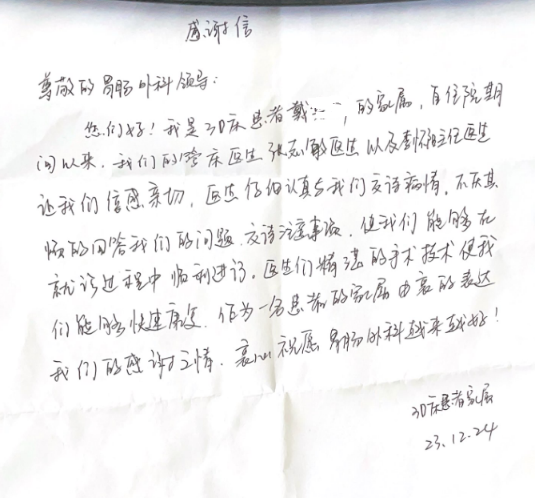 感谢信
尊敬的胃肠外科领导：
您们好！我是30床患者戴 ，的家属，自住院期
间以来，我们的管床医生张志敏医生以及李怀主任医生
让我们倍感亲切，医生仔细认真与我们交谈病情，不厌其
烦的回答我们的问题交待注意事项，使我们能够在
就诊过程中顺利进行。医生们精湛的手术技术使我
们能够快速康复，作为一名患者的家属由衷的表达
我们的感谢之情，衷心祝愿胃肠外科越来越好！
30床患者家属
23.12.24